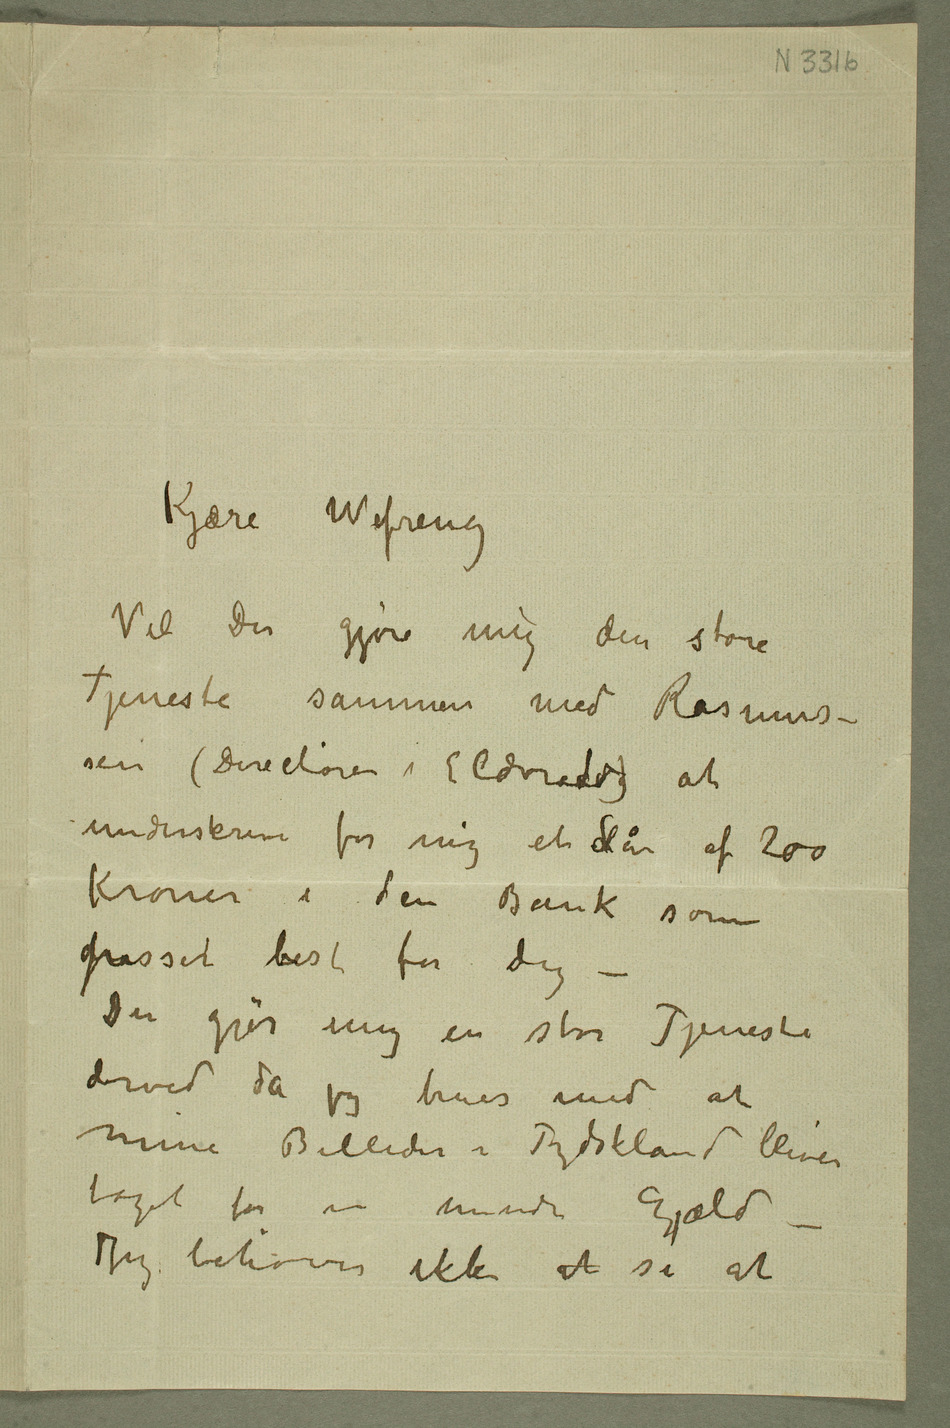 N 3316
Kjære Wefreng
Vil Du gjøre mig den store
Tjeneste sammen med Rasmus-
sen (Directøren i Eldorado) at
underskrive for mig et Lån af 200
Kroner i den Bank som
passet best for dig –
Du gjør mig en stor Tjeneste
derved da jeg trues med at
mine Billeder i Tydskland bliver
taget for en mindre Gjæld –
Jeg behøver ikke at si at